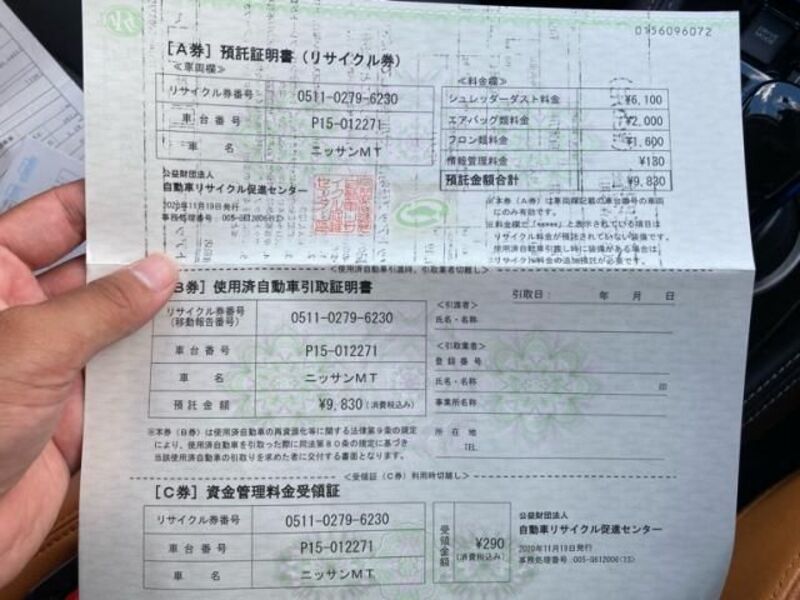 0156096072
[A券] 預託証明書 (リサイクル券)
≪車両欄≫
リサイクル券番号 0511-0279-6230
車台番号 P15-012271
車 名 ニッサンMT
≪料金欄≫
シュレッダーダスト料金 ¥6,100
エアバッグ類料金 ¥2,000
フロン類料金 ¥1,600
情報管理料金 ¥130
預託金額合計 ¥9,830
公益財団法人
自動車リサイクル促進センター
2020年11月19日発行
事務処理番号
※本券(A券)は車両欄記載の車台番号の車両
にのみ有効です。
※料金欄で「****」と表示されている項目は
リサイクル料金が預託されていない装備です。
使用済自動車引渡し時に装備がある場合は
リサイクル料金の追加預託が必要です。
<使用済自動車引渡時、引取業者切離し>
B券] 使用済自動車引取証明書
リサイクル券番号
(移動報告番号) 0511-0279-6230
車台番号 P15-012271
車 名 ニッサンMT
預託金額 ¥9,830 (消費税込み)
引取日: 年 月 日
≪引渡者≫
氏名・名称
≪引取業者≫
登録番号
氏名・名称 印
事業所名称
所在地
TEL
※本券(B券)は使用済自動車の再資源化等に関する法律第9条の規定
により、使用済自動車を引取った際に同法第80条の規定に基づき
当該使用済自動車の引取りを求めた者に交付する書面となります。
<受領証(C券)利用時切離し>
[C券] 資金管理料金受領証
リサイクル券番号 0511-0279-6230
車台番号 P15-012271
車 名 ニッサンMT
受領金額 ¥290
(消費税込み)
公益財団法人
自動車リサイクル促進センター
2020年11月19日発行
事務処理番号